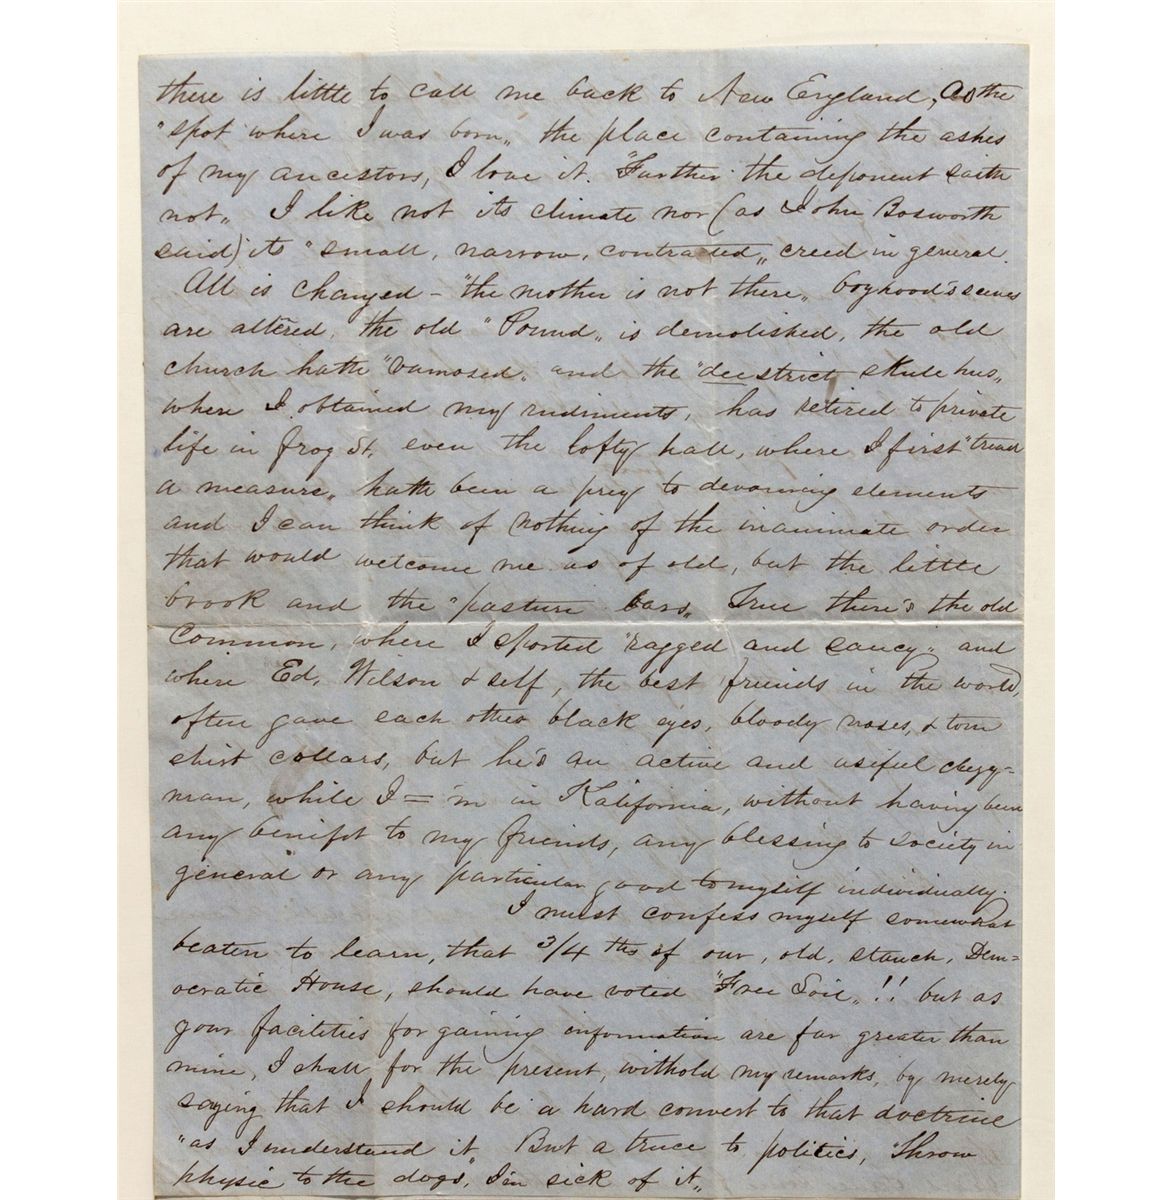 there is little to call me back to New England, as the
"spot where I was born" the place containing the ashes
of my ancestors, I love it. "Further the deponent saith
not" I like not its climate nor (as John Bosworth
said) its "small, narrow, contracted" creed in general.
All is changed – "the mother is not there" boyhood's scenes
are altered, the old "Pound" is demolished, the old
church hath "vamosed" and the "deestrict skule hus"
where I obtained my rudiments, has retired to private
life in frog St, even the lofty hall, where I first "tread
a measure" hath been a prey to devouring elements
and I can think of nothing of the inanimate order
that would welcome me as of old, but the little
brook and the "pasture bars" True there's the old
Common, where I sported "ragged and saucy" and
where Ed. Wilson & self, the best friends in the world,
often gave each other black eyes, bloody noses, & torn
shirt collars, but he's an active and useful clergy-
man, while I = 'm in Kalifornia, without having been
any benifit to my friends, any blessing to society in
general or any particular good to myself individually.
I must confess myself somewhat
beaten to learn, that 3/4 ths of our, old, stauch, Dem=
ocratic House, should have voted "Free Soil" !! but as
your facilities for gaining information are far greater than
mine, I shall for the present, withold my remarks, by merely
saying that I should be a hard convert to that doctrine
"as I understand it" But a truce to politics, "Throw
physic to the dogs, I'm sick of it"